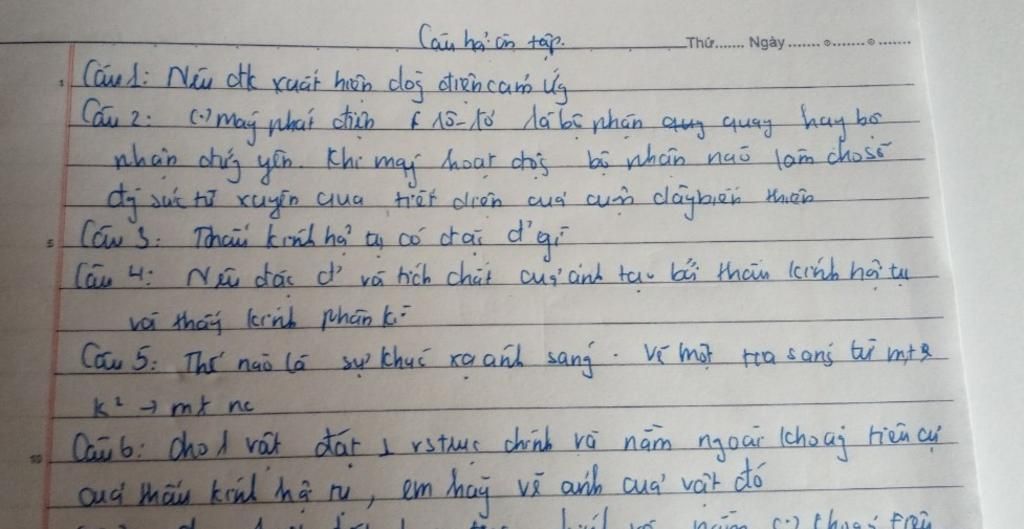 Câu hỏi ôn tập.
Thứ....... Ngày ....... ๏....... ๏ .......
Câu 1: Nêu đk xuất hiện dòg điện cảm ứg
Câu 2: (.) máy phát điện rôto - stato là bộ phận quay hay bộ
phận đứg yên. Khi máy hoạt độg bộ phận nào làm cho số
đg sức từ xuyên qua tiết diện của cuộn dây biến thiên
5 Câu 3: Thấu kính hội tụ có đặc đ' gì
Câu 4: Nêu đặc đ' và tích chất của ảnh tạo bởi thấu kính hội tụ
và thấy kính phân kì
Câu 5: Thế nào là sự khúc xạ ánh sáng. Vẽ một tia sáng từ mt
k² → mt nc
10 Câu 6: Cho 1 vật đặt ⊥ vs trục chính và nằm ngoài khoảg tiêu cự
của thấu kính hội tụ, em hãy vẽ ảnh của vật đó